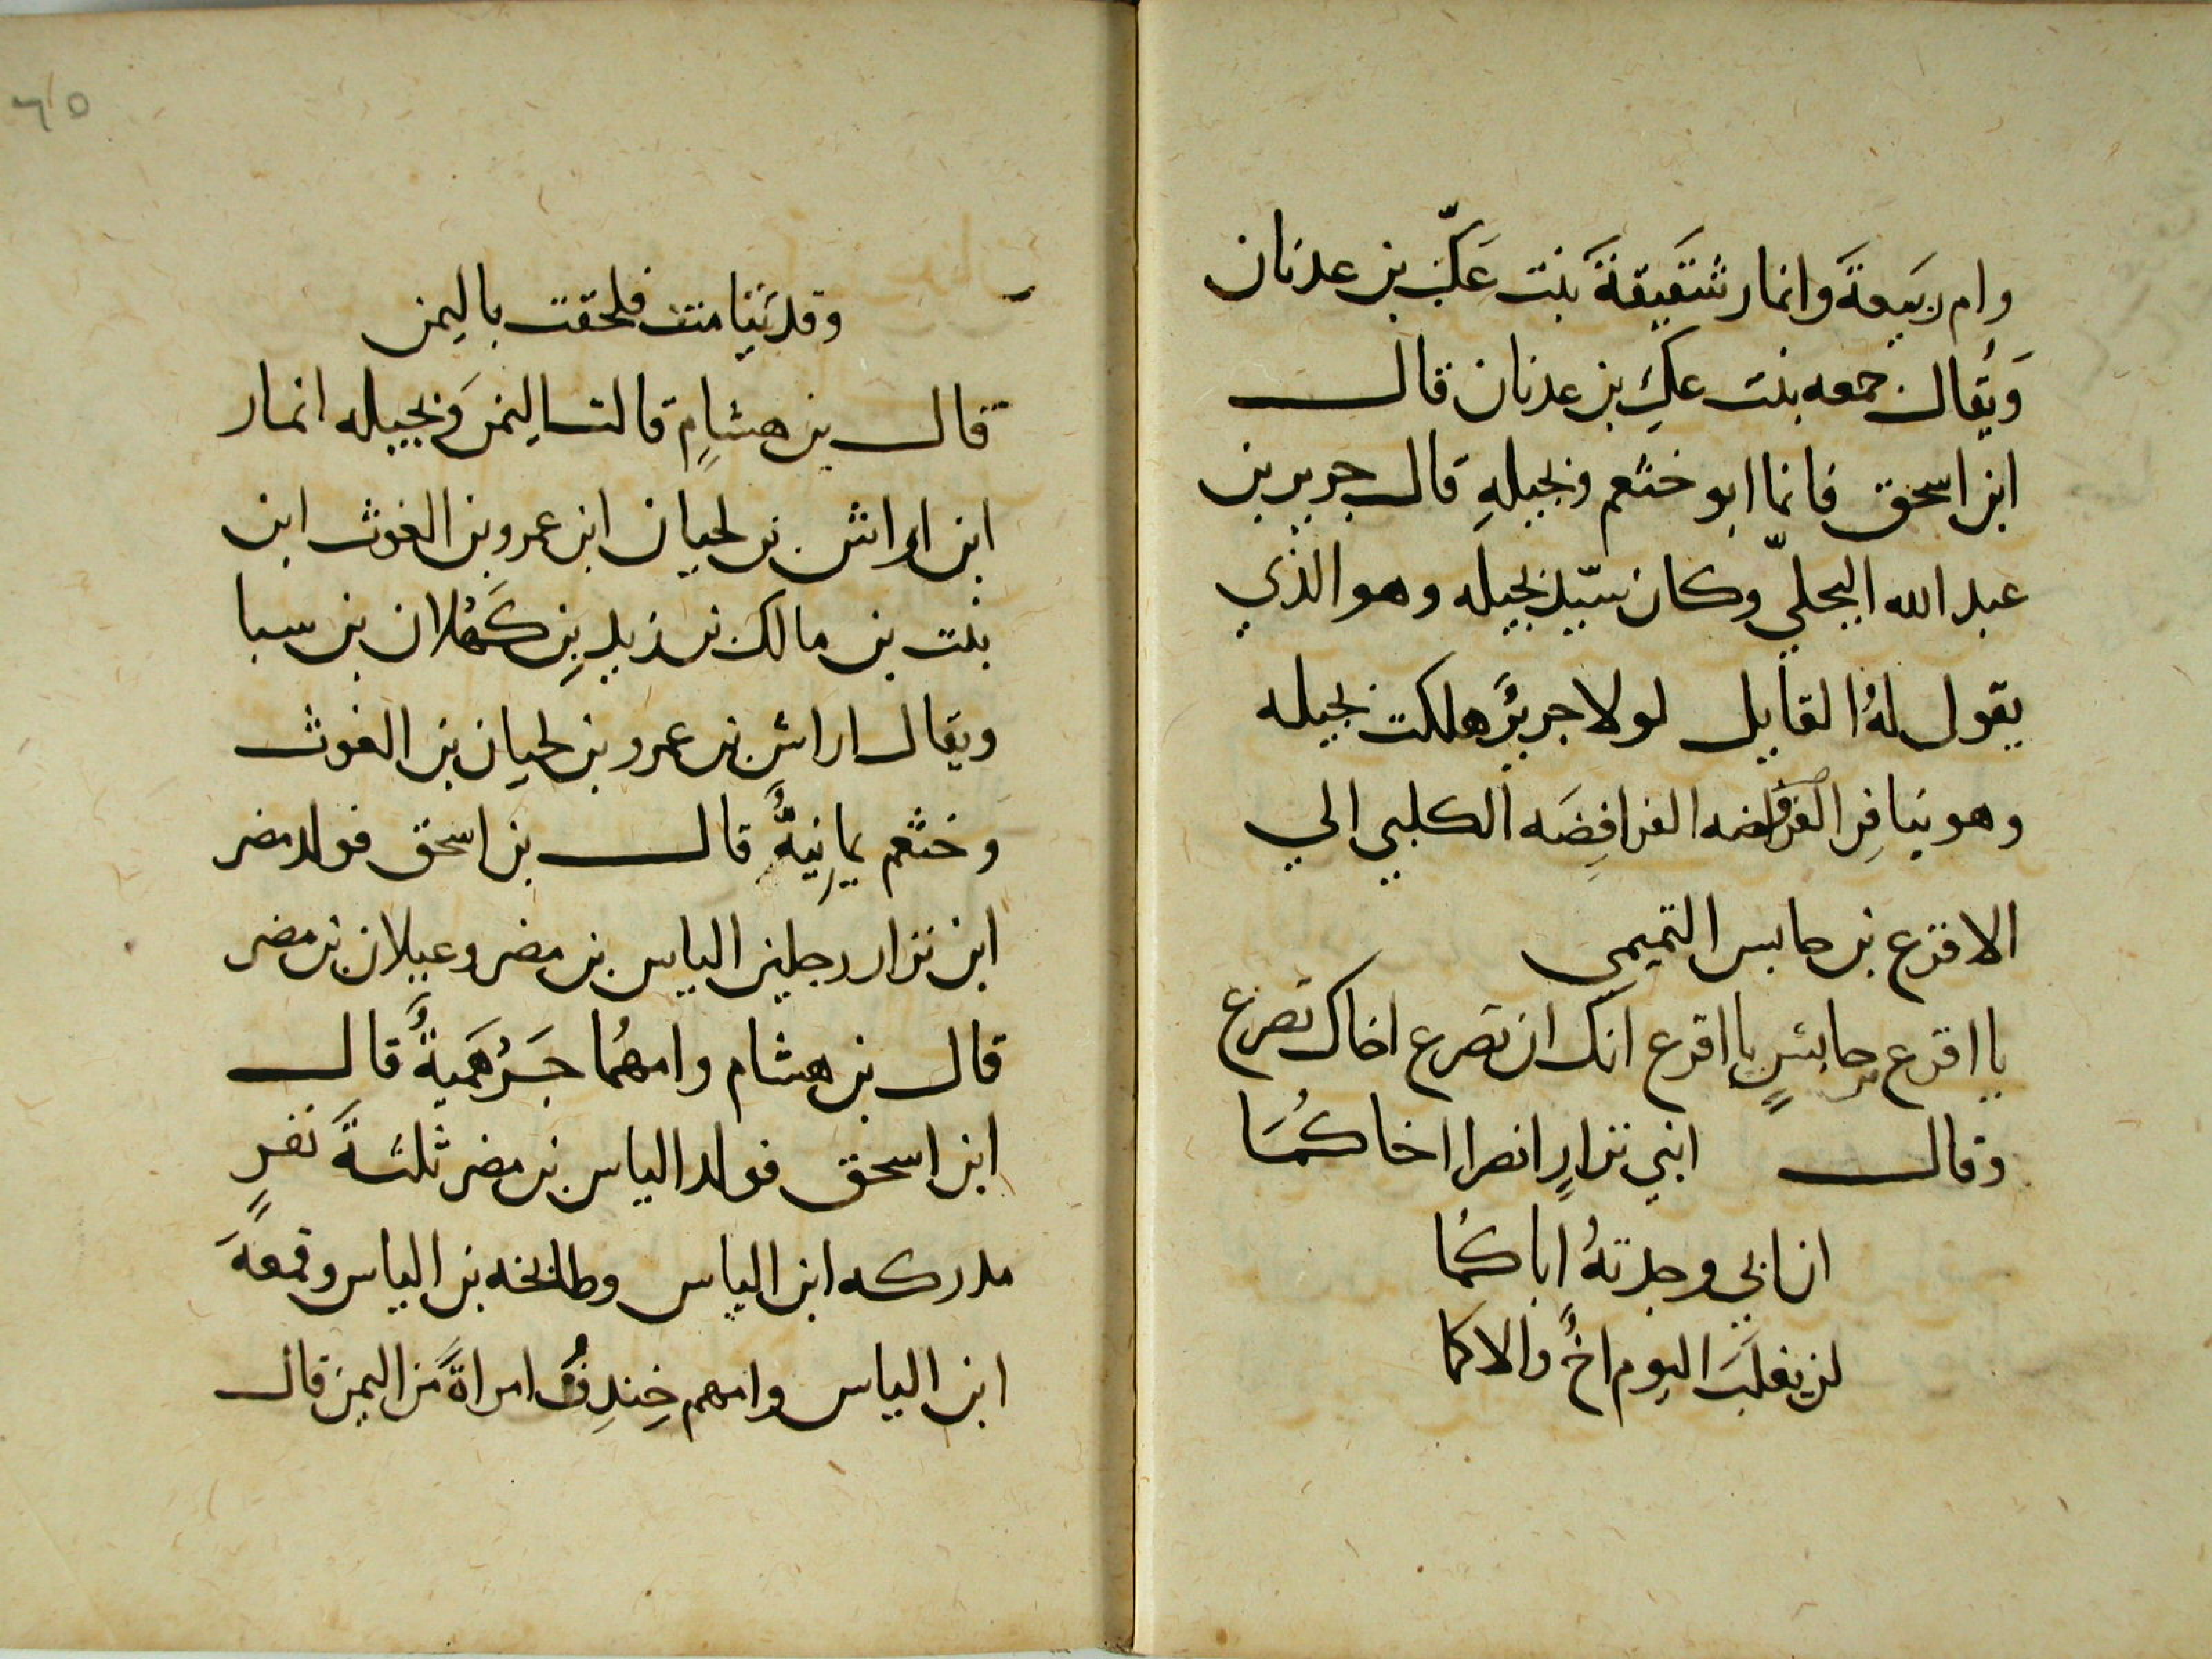 وام ربيعةَ وانمار شقيقةَ بنت عَكّ بن عدنان
وَيُقال جمعه بنت عكِ بن عدنان قال
ابن اسحق فانما ابو خثعم وبجيلهِ قال جرير بن
عبد الله البجليّ وكان سيّد بجيله وهو الذي
يقول لهُ القايل لولا جريرٌ هلكت بجيله
وهو ينافِر الفرافصه الفرافِضَه الكلبي الي
الاقرع بن حابس التميمي
يا اقرع بن حابسٍ يا اقرع انك ان تصرع اخاك تصرع
وقال ابني نزارٍ انصرا اخاكُمَا
ان ابي وجدتهُ اباكُما
لن يغلبَ اليوم اخٌ والاكما
٦٥
وقد تيامنت فلحقت باليمن
قال بن هشامٍ قالت اليمن وَبجيله انمار
ابن اراش بن لحيان ابن عمرو بن الغوث ابن
بنت بن مالك بن زيد بنِ كَهْلان بن سبا
ويقال اراش بن عمرو بن لحيان بن الغوث
وخثعم يمانِيةٌ قال بن اسحق فولد مضر
ابن نزار رجلين الياس بن مضر وعيلان بن مضر
قال بن هشام وامهُما جَرْهَميةٌ قال
ابن اسحق فولد الياس بن مضر ثلثةَ نفرٍ
مدركه ابن الياس وطابخه بن الياس وقمعهَ
ابن الياس وامهم خِندِفُ امراةٌ من اليمن قال